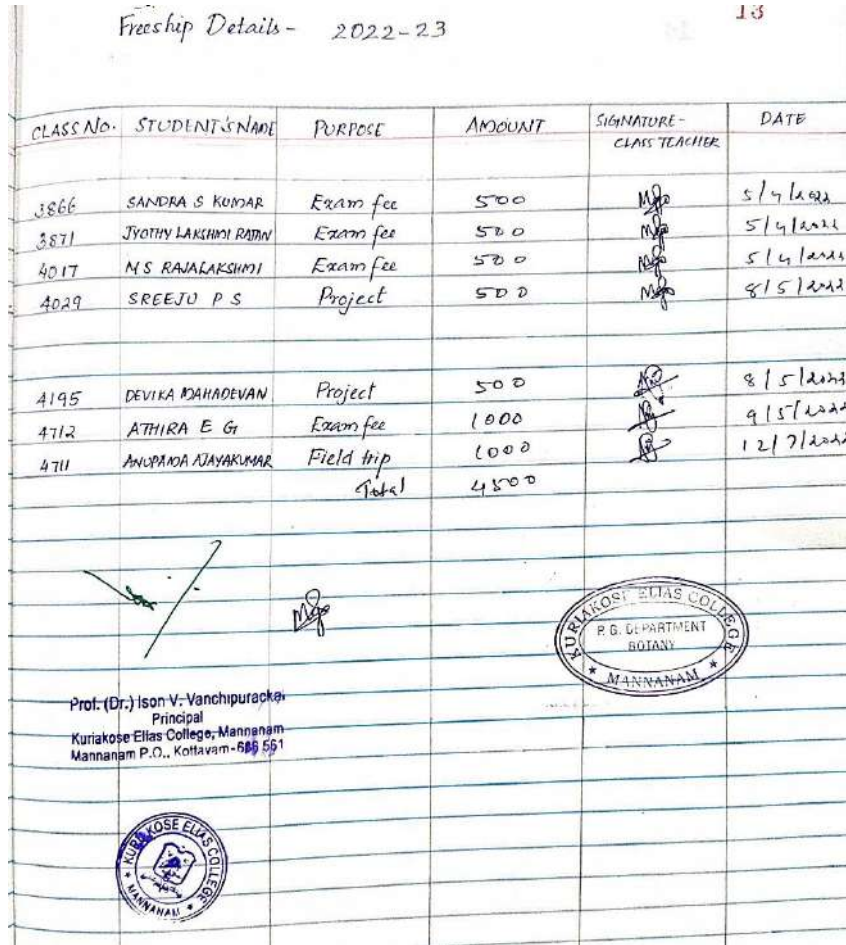 13
Freeship Details - 2022-23
CLASS NO. STUDENT'S NAME PURPOSE AMOUNT SIGNATURE - CLASS TEACHER DATE
3866 SANDRA S KUMAR Exam fee 500 5/4/2022
3871 JYOTHY LAKSHMI RAJAN Exam fee 500 5/4/2022
4017 M S RAJALAKSHMI Exam fee 500 5/4/2022
4029 SREEJU P S Project 500 8/5/2022
4195 DEVIKA MAHADEVAN Project 500 8/5/2022
4712 ATHIRA E G Exam fee 1000 9/5/2022
4711 ANUPAMA AJAYAKUMAR Field trip 1000 12/7/2022
Total 4500
KURIAKOSE ELIAS COLLEGE
P. G. DEPARTMENT
BOTANY
* MANNANAM *
Prof. (Dr.) Ison V. Vanchipurackal
Principal
Kuriakose Elias College, Mannanam
Mannanam P.O., Kottayam-686 561
KURIAKOSE ELIAS COLLEGE
* MANNANAM *